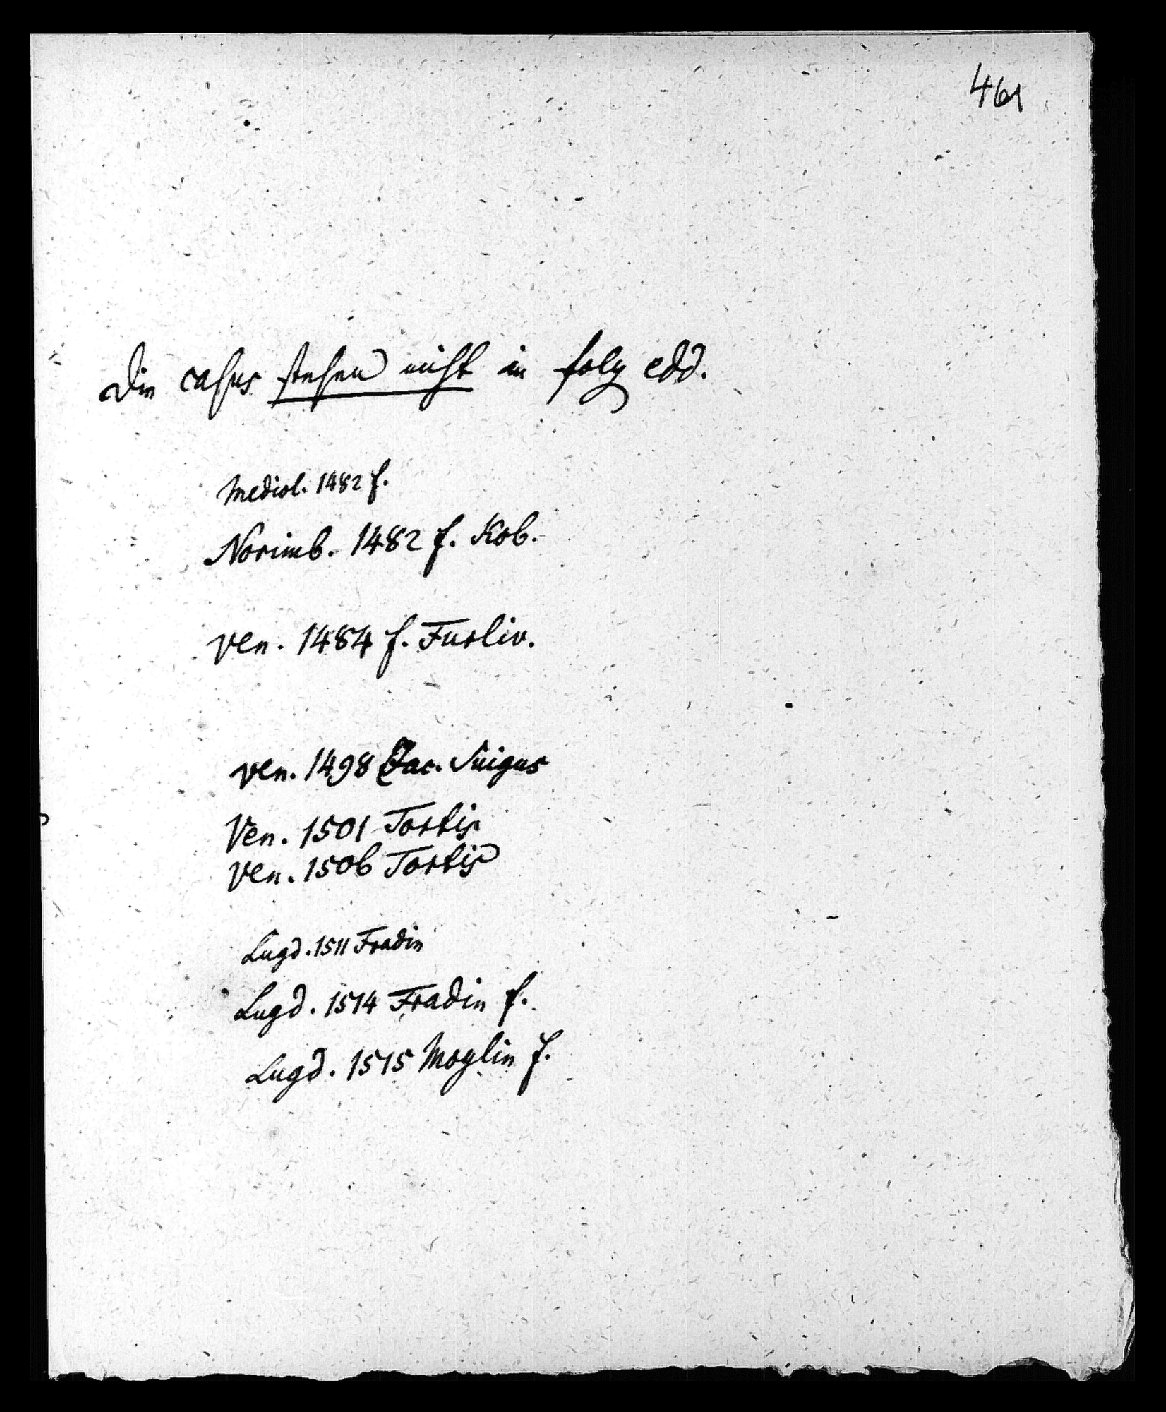 461
Die casus stehen nicht in folg edd.
Mediol. 1482 f.
Norimb. 1482 f. Kob.
Ven. 1484 f. Furliv.
Ven. 1498 Jac. Suigus
Ven. 1501 Tortis
Ven. 1506 Tortis
Lugd. 1511 Fradin
Lugd. 1514 Fradin f.
Lugd. 1515 Moylin f.